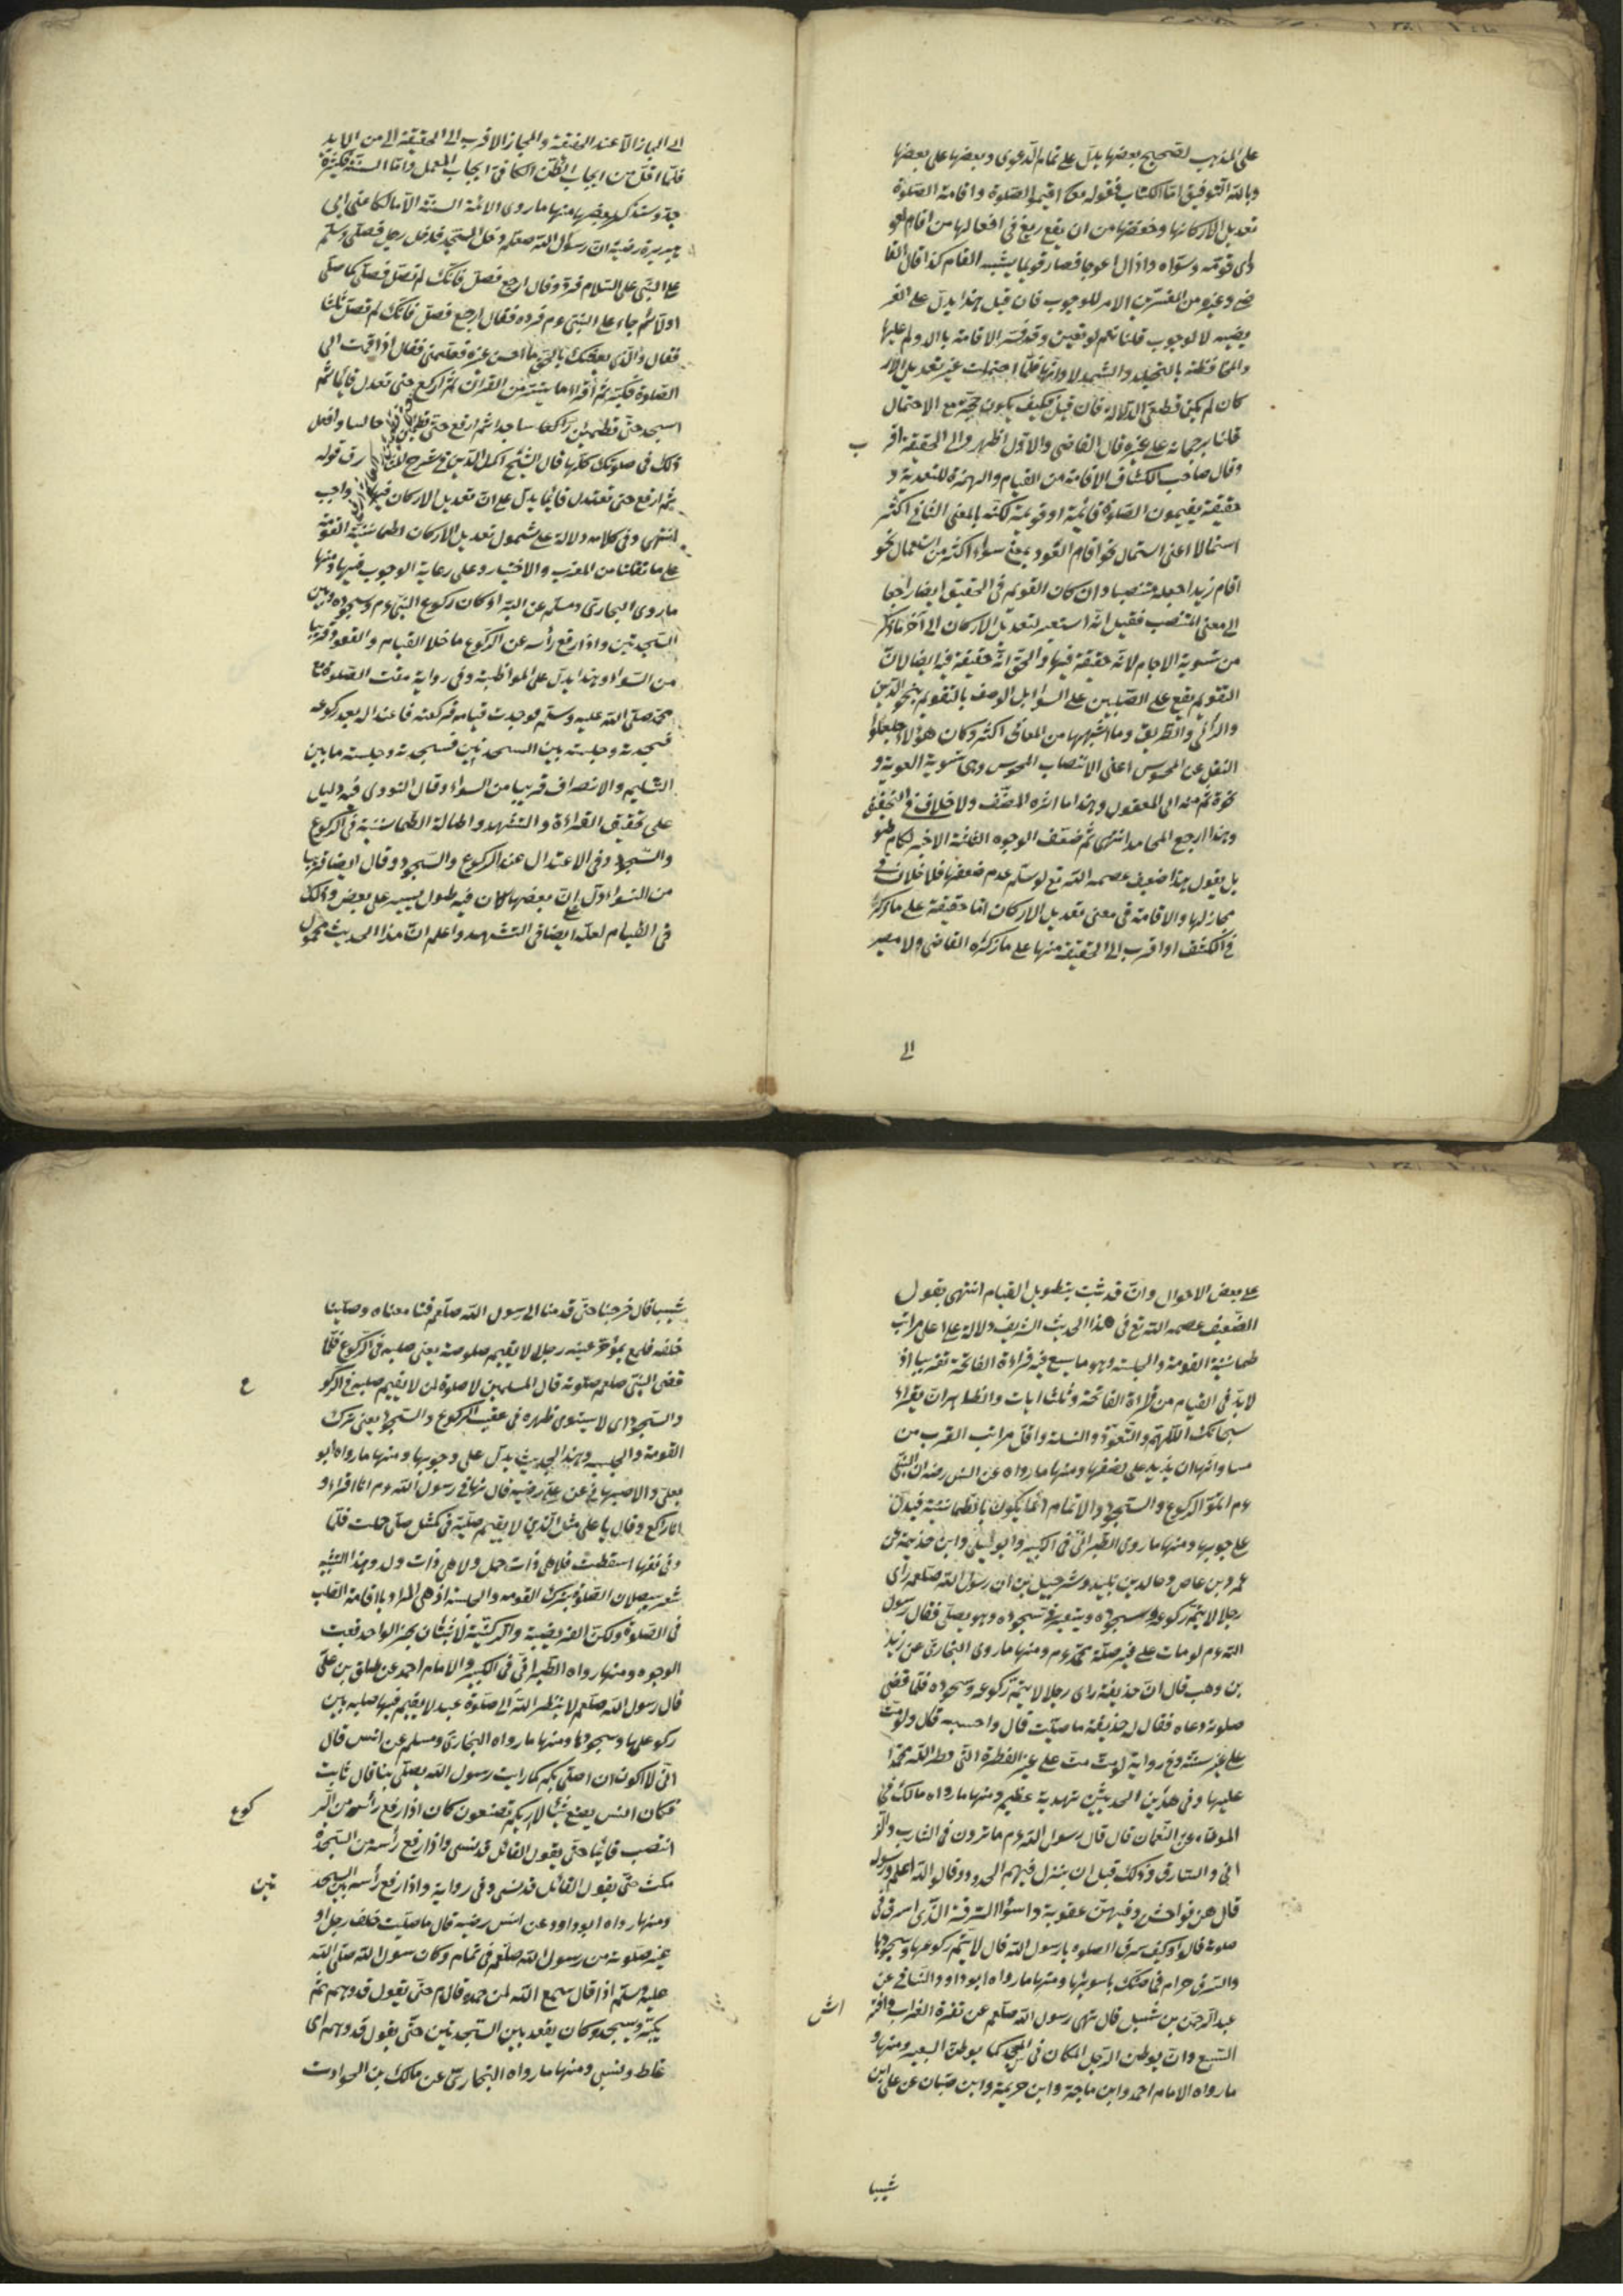 على المذهب لتصحيح بعضها يدل على تمام الدعوى وبعضها على بعضها
وبالله التوفيق اما الكتاب فقوله تعالى اقيموا الصلوة واقامة الصلوة
تعديل اركانها وحفظها من ان يقع زيغ في افعالها من اقام العود
اى قومه وسواه وازال اعوجاجه فصار قويما يشبه القائم كذا قال القا
ضى وغيره من المفسرين الامر للوجوب فان قيل هذا يدل على الفر
ضية لا الوجوب قلنا نعم لو تعين وقد فسر الاقامة بالادوام عليها
والمحافظة بالتجلد والتشمر لادائها فلما احتملت غير تعديل الار
كان لم يكن قطعى الدلالة فان قيل فكيف يكون حجة مع الاحتمال
قلنا برجحانه على غيره قال القاضى والاول اظهر والى الحقيقة اقر
ب
وقال صاحب الكشاف الاقامة من القيام والهمزة للتعدية و
حقيقة يقيمون الصلوة قائمة او قويمة لكنه بالمعنى الثانى اكثر
استعمالا اعنى استعمال نحو اقام العود بمعنى سواه اكثر من استعمال نحو
اقام زيدا جعله منتصبا وان كان القويم فى التحقيق ايضا راجعا
الى معنى المنتصب فقيل انه استعير لتعديل الاركان الى آخر ما ذكر
من تسوية الاجسام لانه حقيقة فيها والحق انه حقيقة فيه ايضا لان
التقويم يقع على القبيلين على السواء بل الوصف بالتقويم نحو الدين
والرأى والطريق وما اشبهها من المعانى اكثر وكان هؤلاء جعلوا
النقل عن المحسوس اعنى الانتصاب المحسوس وهى تسوية العود و
نحوه ثم منه الى المعقول وهذا ما اثره المصنف ولا خلاف فى التحقيق
وبهذا ارجع المحامد انتهى ثم ضعف الوجوه الثلثة الاخيرة لكلام طو
يل يقول هذا ضعيف عصمه الله تع لو سلم عدم ضعفها فلا خلاف فى
مجازلها والاقامة فى معنى تعديل الاركان اما حقيقة على ما ذكره
فى الكشف او اقرب الى الحقيقة منها على ما ذكره القاضى ولا مصير
الى
الى المجاز الا عند الحقيقة والمجاز الاقرب الى الحقيقة الى من الابد
فلما اقل من ايجاب الظن الكافى فى ايجاب العمل واما السنة فكثيرة
جدا وسنذكر بعضها منها ما روى الائمة الستة الا مالكا عن ابى
هريرة رضيه ان رسول الله صلعم دخل المسجد فدخل رجل فصلى وسلم
على النبى على السلام فرد وقال ارجع فصل فانك لم تصل فصلى كما صلى
اولا ثم جاء على النبى ءم فرده فقال ارجع فصل فانك لم تصل ثلثا
فقال والذى بعثك بالحق ما احسن غيره فعلمنى فقال اذا قمت الى
الصلوة فكبر ثم اقراء ما يتيسر من القرآن ثم اركع حتى تعدل قائما ثم
اسجد حتى تطمئن راكعا ساجدا ثم ارفع حتى تطمئن جالسا وافعل
ذلك فى صلوتك كلها قال الشيخ اكمل الدين فى شرح المشارق قوله
ثم ارفع حتى تعتدل قائما يدل على ان تعديل الاركان فيها واجب
انتهى وفى كلامه دلالة على شمول تعديل الاركان اطمأنينة القومة
على ما نقلنا من المغرب والاختيار وعلى رعاية الوجوب فيها ومنها
ما روى البخارى ومسلم عن البراء كان ركوع النبى ءم وسجوده وبين
السجدتين واذا رفع رأسه عن الركوع ما خلا القيام والقعود قريبا
من السواء وهذا يدل على المواظبة وفى رواية رمقت الصلوة مع
محمد صلى الله عليه وسلم فوجدت قيامه فركعته فاعتداله بعد ركوعه
فسجدته وجلسته بين السجدتين فسجدته وجلسته ما بين
التسليم والانصراف قريبا من السواء وقال النووى فيه دليل
على تخفيف القراءة والتشهد واطالة الطمأنينة فى الركوع
والسجود وفى الاعتدال عند الركوع والسجود وقال ايضا قريبا
من السواء دل على ان بعضها كان فيه طول يسير على بعض وذلك
فى القيام لعله ايضا فى التشهد واعلم ان هذا الحديث محمول
على بعض الاحوال وان قد ثبت بتطويل القيام انتهى يقول
الضعيف عصمه الله تع فى هذا الحديث الشريف دلالة على اعلى مراتب
طمأنينة القومة والجلسة وهو ما يسع فيه قراءة الفاتحة تقريبا اذ
لا بد فى القيام من قراءة الفاتحة وثلث ايات والظاهر ان يقراء
سبحانك اللهم والتعوذ والبسملة واقل مراتب القرب من
مساواتها ان يزيد على نصفها ومنها ما رواه عن انس رضه ان النبى
ءم اتموا الركوع والسجود والاتمام انما يكون بالطمأنينة فيدل
على وجوبها ومنها ما روى الطبرانى فى الكبير وابو ليلى وابن خذيمة عن
عمرو بن عاص وخالد بن وليد وشرحبيل بن ان رسول الله صلعم رأى
رجلا لا يتم ركوعه وسجوده وينقر فى سجوده وهو يصلى فقال رسول
الله ءم لو مات على غير ملة محمد ءم ومنها ما روى البخارى عن زيد
بن وهب قال ان حذيفة راى رجلا لا يتم ركوعه وسجوده فلما قضى
صلوته دعاه فقال له حذيفة ما صليت قال واحسبه قال ولو مت
على غير سنة وفى رواية لو مت مت على غير الفطرة التى فطر الله محمدا
عليها وفى هذين الحديثين تهديد عظيم ومنها ما رواه مالك فى
الموطاء عن النعمان قال قال رسول الله ءم ما ترون فى الشارب والز
انى والسارق وذلك قبل ان ينزل فيهم الحدود وقالوا الله اعلم ورسوله
قال هن فواحش وفيهن عقوبة واسؤا السرقة الذى يسرق فى
صلوته قالوا وكيف يسرق الصلوة يا رسول الله قال لا يتم ركوعها وسجودها
والسرق حرام ومنها ما رواه ابو داود والنسائى عن
عبد الرحمن بن شبل قال نهى رسول الله صلعم عن نقرة الغراب وافتر
اش
السبع وان يوطن الرجل المكان فى المسجد كما يوطن البعير ومنها
ما رواه الامام احمد وابن ماجة وابن خزيمة وابن حبان عن على بن
شيبا
شيبا قال خرجنا حتى قدمنا الى رسول الله صلعم فبايعناه وصلينا
خلفه فلمح بمؤخر عينه رجلا لا يقيم صلوته يعنى صلبه فى الركوع فلما
قضى النبى صلعم صلوته قال المسلمين لا صلوة لمن لا يقيم صلبه فى الركو
ع
والسجود اى لا يستوى ظهره فى عقيب الركوع والسجود يعنى ترك
القومة والجلسة وهذا الحديث يدل على وجوبها ومنها ما رواه ابو
يعلى والاصبهانى عن على رضيه قال نهانى رسول الله ءم انا اقراء و
انا راكع وقال يا على مثل الذى لا يقيم صلبه فى كمثل حبلى حملت فلما
دنى نفاسها اسقطت فلا هى ذات حمل ولا هى ذات ولد وهذا التشبيه
يشعر ببطلان الصلوة بترك القومة والجلسة اذ هى المراد باقامة الصلب
فى الصلوة ولكن الفرضية والركنية لا تثبتان بخبر الواحد فبقيت
الوجوه ومنها رواه الطبرانى فى الكبير والامام احمد عن طلق بن على
قال رسول الله صلعم لا ينظر الله الى صلوة عبد لا يقيم فيها صلبه بين
ركوعها وسجودها ومنها ما رواه البخارى ومسلم عن انس قال
انى لا اكون ان اصلى بكم كما رايت رسول الله يصلى بنا قال ثابت
فكان انس يصنع شيئا لا اريكم تصنعون كان اذا رفع رأسه من الر
كوع
انتصب قائما حتى يقول القائل قد نسى واذا رفع رأسه من السجدة
مكث حتى يقول القائل قد نسى وفى رواية واذا رفع رأسه بين السجد
تين
ومنها رواه ابو داود عن انس رضيه قال ما صليت خلف رجل او
جز صلوته من رسول الله صلعم فى تمام وكان رسول الله صلى الله
عليه وسلم اذا قال سمع الله لمن حمده قام حتى يقول قد وهم ثم
يكبر ويسجد وكان يقعد بين السجدتين حتى يقول قد وهم اى
غلط ونسى ومنها ما رواه البخارى عن مالك بن الحوارث